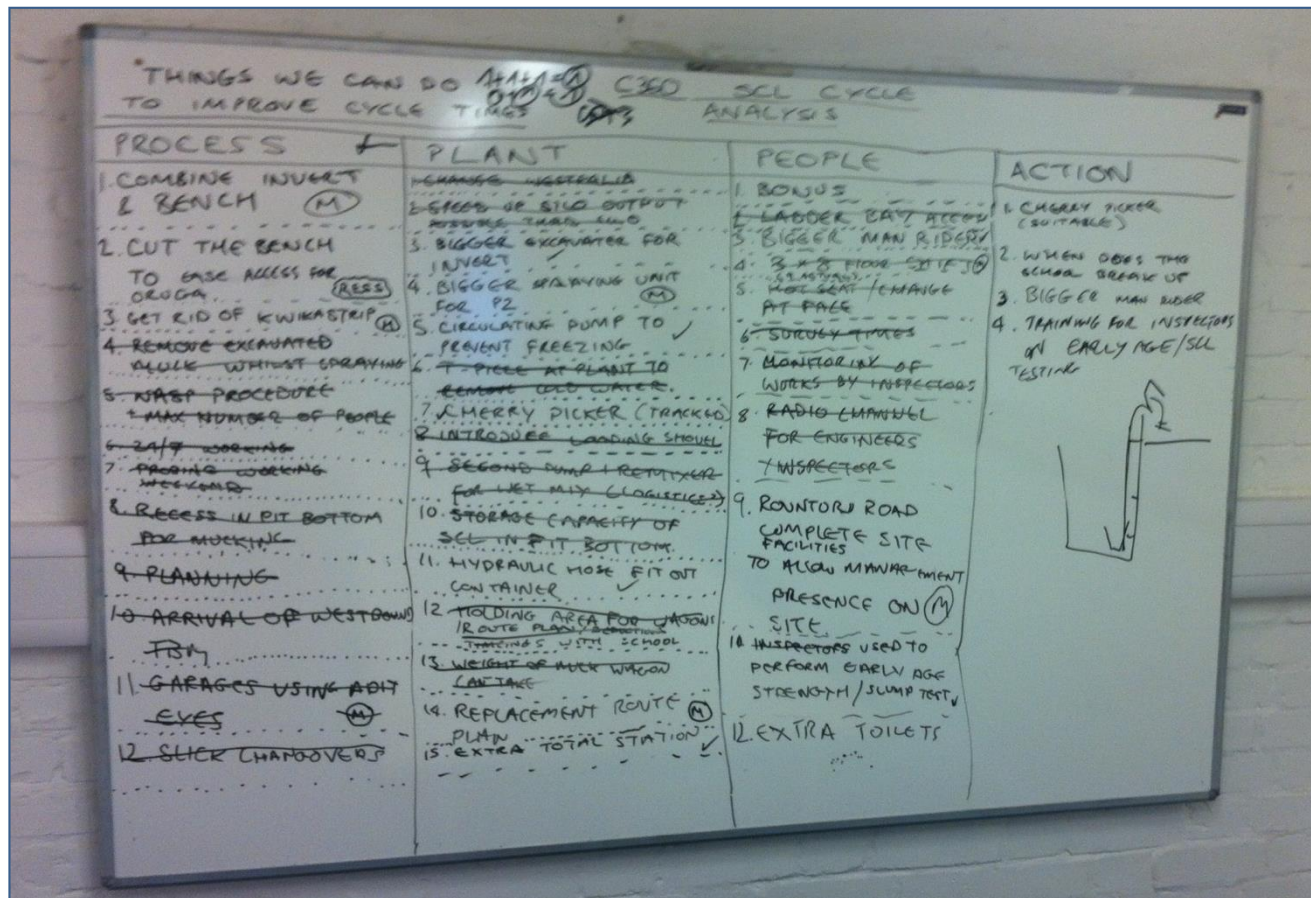 THINGS WE CAN DO
TO IMPROVE CYCLE TIMES
C360 SCL CYCLE
ANALYSIS
PROCESS
1. COMBINE INVERT
& BENCH M
2. CUT THE BENCH
TO EASE ACCESS FOR
ORUGA. RESS
3. GET RID OF KWIKASTRIP M
4. REMOVE EXCAVATED
MUCK WHILST SPRAYING
5. NASP PROCEDURE
* MAX NUMBER OF PEOPLE
6. 24/7 WORKING
7. PROBING WORKING
WEEKEND
8. RECESS IN PIT BOTTOM
FOR MUCKING
9. PLANNING
10 ARRIVAL OF WESTBOUND
TBM
11. GARAGES USING ADIT
EYES M
12. SLICK CHANGOVERS
PLANT
1. CHANGE WESTERLIA
2. SPEED OF SILO OUTPUT
3. BIGGER EXCAVATER FOR
INVERT ✓
4. BIGGER SPRAYING UNIT
FOR P2 M
5. CIRCULATING PUMP TO ✓
PREVENT FREEZING
6. T-PIECE AT PLANT TO
REMOVE COLD WATER.
7. CHERRY PICKER (TRACKED)
8. INTRODUCE LOADING SHOVEL
9. SECOND PUMP / REMIXER
FOR WET MIX (LOGISTICS?)
10. STORAGE CAPACITY OF
SCL IN PIT BOTTOM.
11. HYDRAULIC HOSE FIT OUT
CONTAINER ✓
12 HOLDING AREA FOR WAGONS
/ROUTE PLAN/
TIMINGS WITH SCHOOL
13. WEIGHT OF MUCK WAGON
CAN TAKE
14. REPLACEMENT ROUTE M
PLAN
15. EXTRA TOTAL STATION ✓
PEOPLE
1. BONUS
2. LADDER BAY ACCESS
3. BIGGER MAN RIDER ✓
4. 3 x 8 HOUR SHIFTS
5. HOT SEAT / CHANGE
AT FACE
6. SURVEY TIMES
7. MONITORING OF
WORKS BY INSPECTORS
8. RADIO CHANNEL
FOR ENGINEERS
/INSPECTORS
9. ROUNTON ROAD
COMPLETE SITE
FACILITIES
TO ALLOW MANAGEMENT
PRESENCE ON M
SITE
INSPECTORS USED TO
PERFORM EARLY AGE
STRENGTH/SLUMP TEST ✓
12. EXTRA TOILETS
ACTION
1. CHERRY PICKER
(SUITABLE)
2. WHEN DOES THE
SCHOOL BREAK UP
3. BIGGER MAN RIDER
4. TRAINING FOR INSPECTORS
ON EARLY AGE/SCL
TESTING